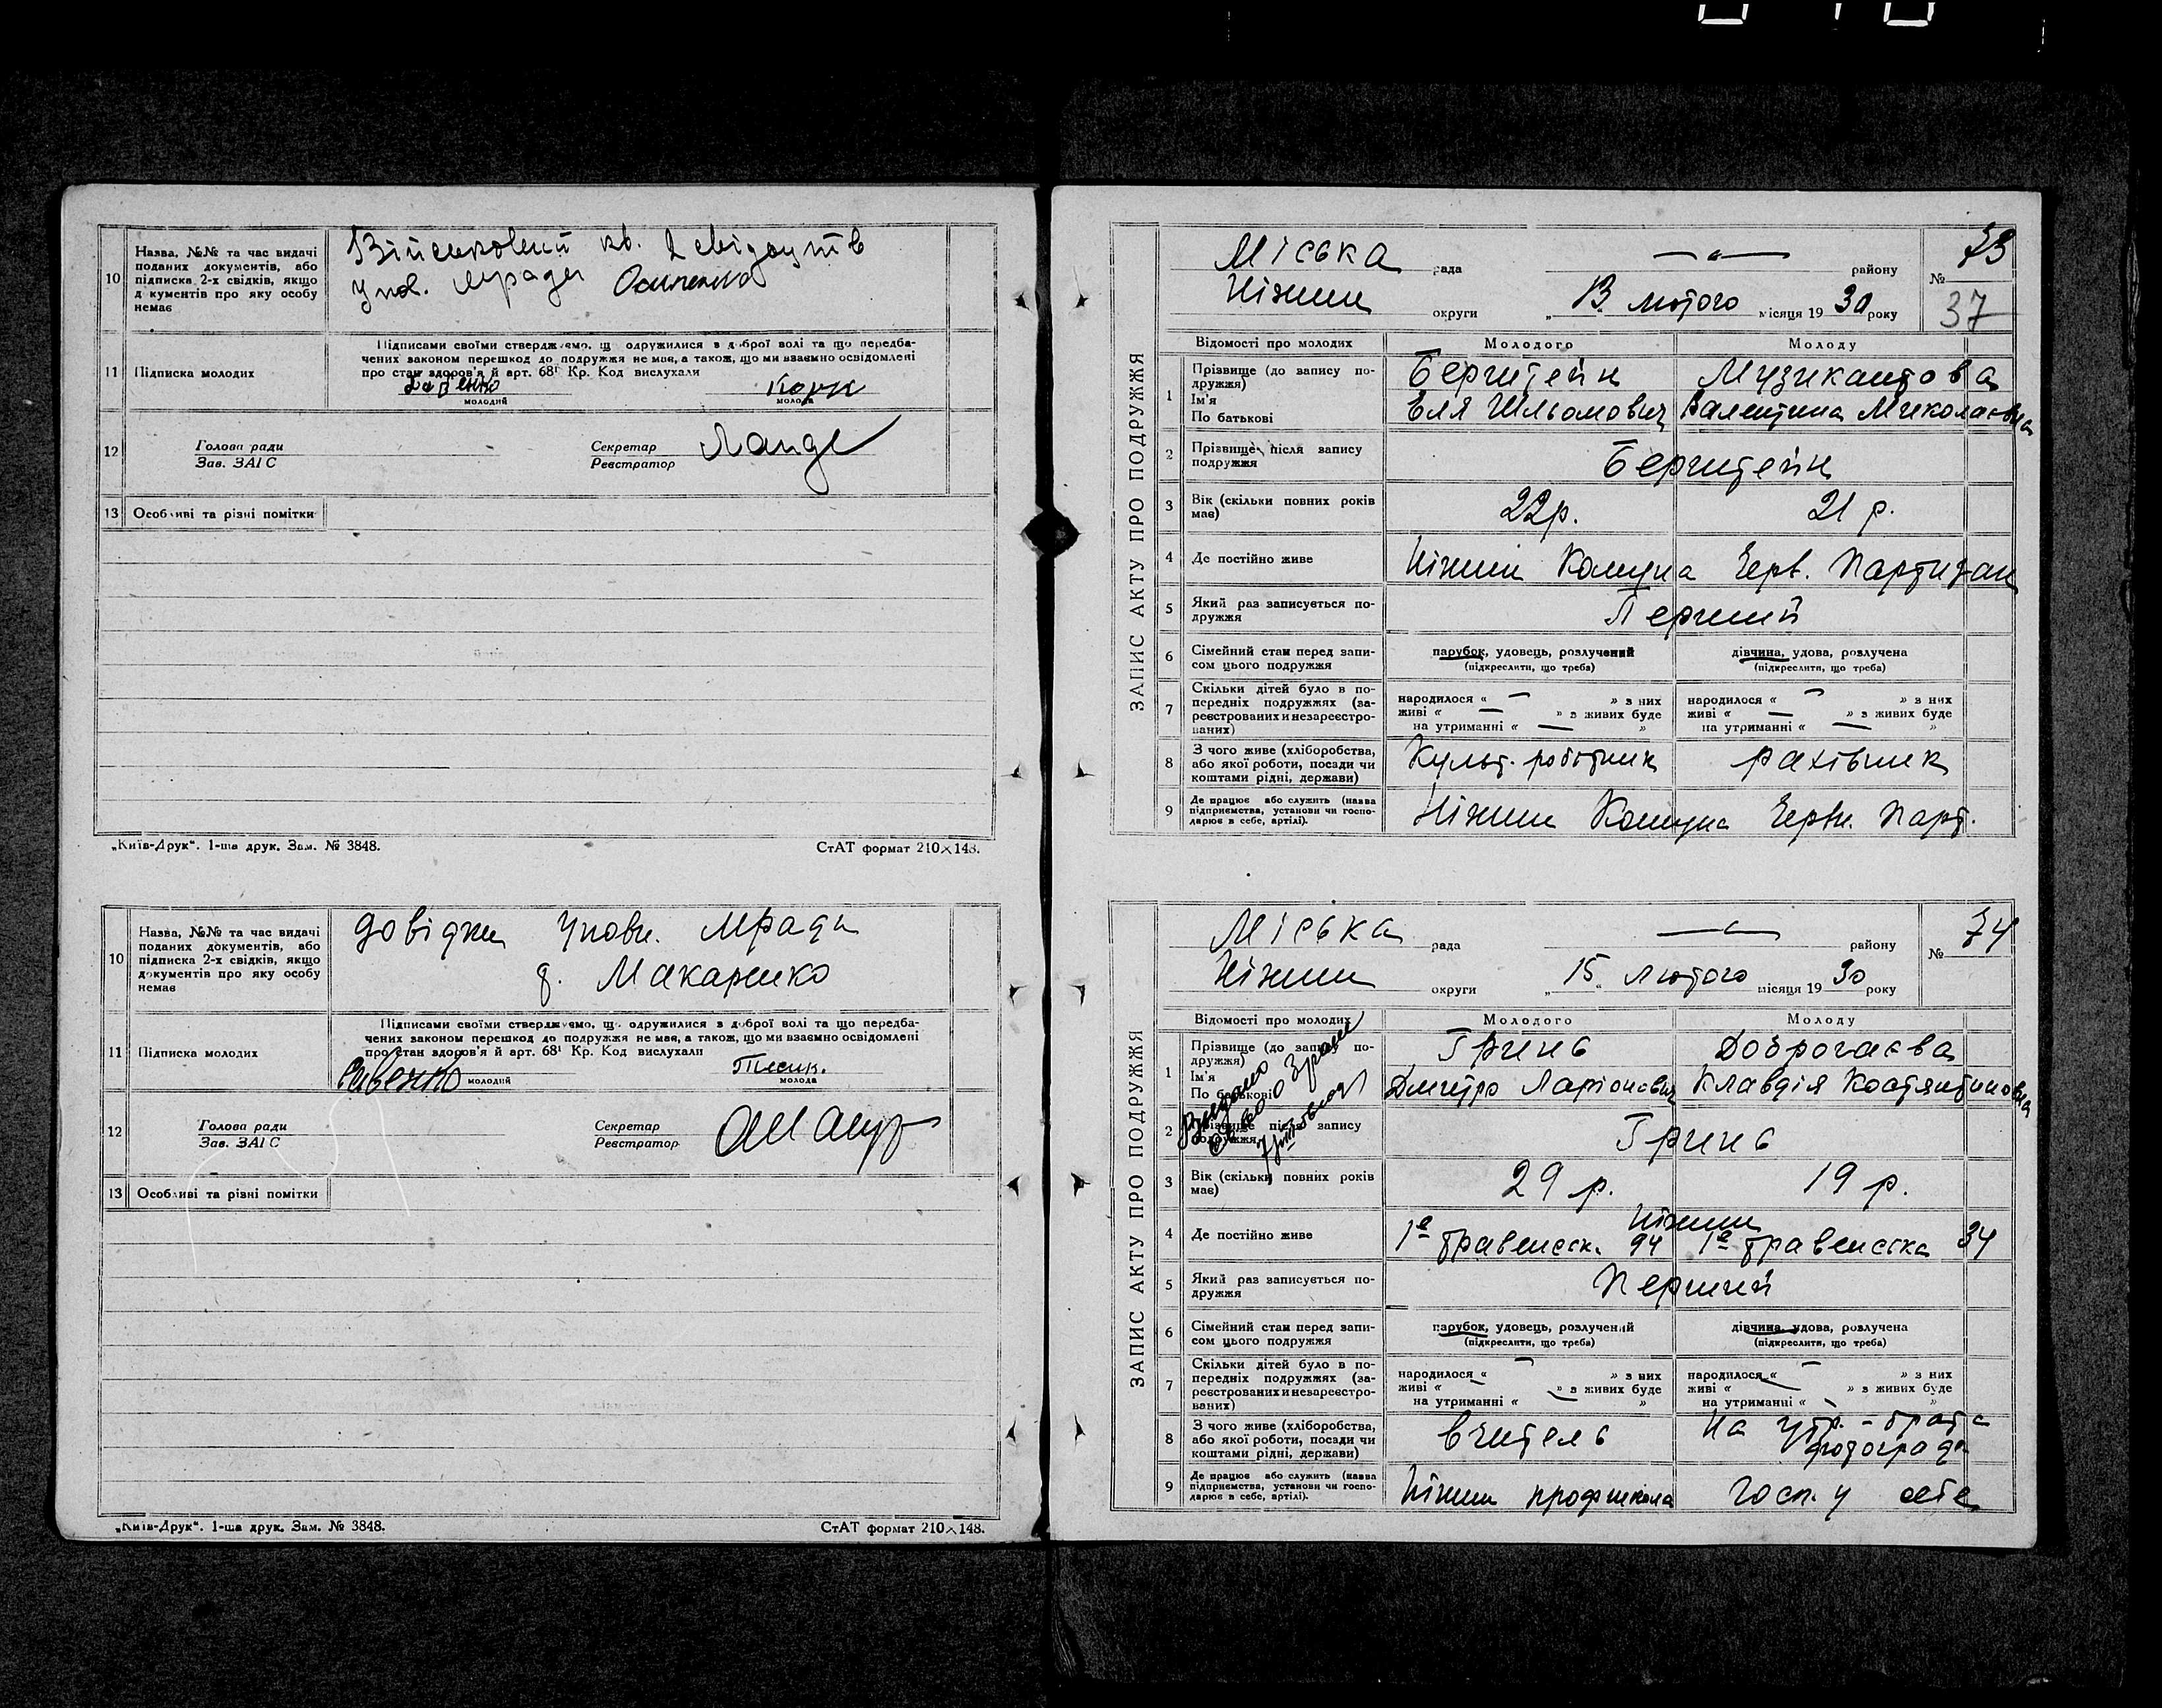 10
Назва, №№ та час видачі
поданих документів, або
підписка 2-х свідків, якщо
д кументів про яку особу
немає
Військовий кв. 2 свідоцтв
Упов. Мради
11
Підписка молодих
Підписами своїми стверджуємо, що одружилися з доброї волі та що передба-
чених законом перешкод до подружжя не має, а також, що ми взаємно освідомлені
про стан здоров'я й арт. 68¹ Кр. Код вислухали
молодий
молода
12
Голова ради
Зав. ЗАГС
Секретар
Реєстратор
Ланде
13
Особливі та різні помітки
„Київ-Друк“. 1-ша друк. Зам. № 3848.
СтАТ формат 210×148.
10
Назва, №№ та час видачі
поданих документів, або
підписка 2-х свідків, якщо
документів про яку особу
немає
довідки Уповн. Мради
Макаренко
11
Підписка молодих
Підписами своїми стверджуємо, що одружилися з доброї волі та що передба-
чених законом перешкод до подружжя не має, а також, що ми взаємно освідомлені
про стан здоров'я й арт. 68¹ Кр. Код вислухали
Савенко
молодий
молода
12
Голова ради
Зав. ЗАГС
Секретар
Реєстратор
13
Особливі та різні помітки
„Київ-Друк“. 1-ша друк. Зам. № 3848.
СтАТ формат 210×148.
ЗАПИС АКТУ ПРО ПОДРУЖЖЯ
Міська рада — „ — району
№ 73
37
Ніжин округи „13“ лютого місяця 1930 року
Відомості про молодих
Молодого
Молоду
1
Прізвище (до запису по-
дружжя)
Ім'я
По батькові
Берштейн
Еля Шльомович
Музикантова
Валентина Миколаєвна
2
Прізвище після запису
подружжя
Берштейн
3
Вік (скільки повних років
має)
22 р.
21 р.
4
Де постійно живе
Ніжин Комуна Черв. Партизан
5
Який раз записується по-
дружжя
Перший
6
Сімейний стан перед запи-
сом цього подружжя
парубок, удовець, розлучений
(підкреслити, що треба)
дівчина, удова, розлучена
(підкреслити, що треба)
7
Скільки дітей було в по-
передніх подружжях (за-
реєстрованих и незареєстро-
ваних)
народилося « — » з них
живі « — » з живих буде
на утриманні « — »
народилося « — » з них
живі « — » з живих буде
на утриманні « — »
8
З чого живе (хліборобства,
або якої роботи, посади чи
коштами рідні, держави)
Культ. робітник
рахівник
9
Де працює або служить (назва
підприємства, установи чи госпо-
дарює в себе, артілі).
Ніжин Комуна Червн. Парт.
ЗАПИС АКТУ ПРО ПОДРУЖЖЯ
Міська рада — „ — району
№ 74
Ніжин округи „15“ лютого місяця 1930 року
Відомості про молодих
Молодого
Молоду
1
Прізвище (до запису по-
дружжя)
Ім'я
По батькові
Гринь
Дмитро Ларіонович
Доброгаєва
Клавдія Костянтиновна
2
Прізвище після запису
подружжя
Гринь
3
Вік (скільки повних років
має)
29 р.
19 р.
4
Де постійно живе
Ніжин
1е травенськ. 94
1е травенська 34
5
Який раз записується по-
дружжя
Перший
6
Сімейний стан перед запи-
сом цього подружжя
парубок, удовець, розлучений
(підкреслити, що треба)
дівчина, удова, розлучена
(підкреслити, що треба)
7
Скільки дітей було в по-
передніх подружжях (за-
реєстрованих и незареєстро-
ваних)
народилося « — » з них
живі « — » з живих буде
на утриманні « »
народилося « — » з них
живі « — » з живих буде
на утриманні « — »
8
З чого живе (хліборобства,
або якої роботи, посади чи
коштами рідні, держави)
вчитель
на утр. - брата
фотографа
9
Де працює або служить (назва
підприємства, установи чи госпо-
дарює в себе, артілі).
Ніжин профшкола
госп. у себе